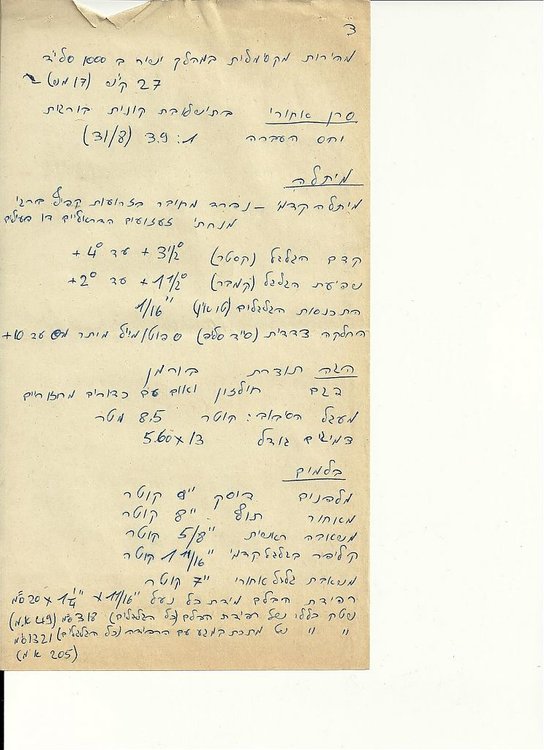 3
מהירות מקסמלית במהלך ישיר ב 1000 סל״ד
27 קמ״ש (17 מש״)
סרן אחורי בתישלובת קונית בורגית
יחס העברה 1 : 3.9 (31/8)
מיתלה
מיתלה קדמי – נפרד מחובר בזרועות קפיץ ברגי
מנחתי זעזועים הדראוליים דו פעלים
קדם הגלגל (קסטר) 3½° + עד 4° +
שפיעת הגלגל (קמבר) 1½° + עד 2° +
התכנסות הגלגלים (טו אין) 1/16"
החלקה צדדית (סייד סליפ) פוט/מייל מיתר עד 10+
הגה תוצרת בורמן
דגם חילזון ואום עם כדורים מחזוריים
מעגל הסבוב: קוטר 8.5 מטר
צמיגים גודל 5.60 x 13
בלמים
מלפנים דיסק 9" קוטר
מאחור תוף 8" קוטר
משאבה ראשית 5/8" קוטר
קליפר בגלגל קדמי 1 11/16" קוטר
משאבת גלגל אחורי 7" קוטר
רפידת הבלם מידת כל נעל 11/16" x 1¼"
שטח כללי של רפידת הבלם (כל הגלגלים) 318 סמ״ (49 א.מ)
" " נט מתכת במגע עם הרפידה (כל הגלגלים) 1321 סמ״
(205 א.מ)